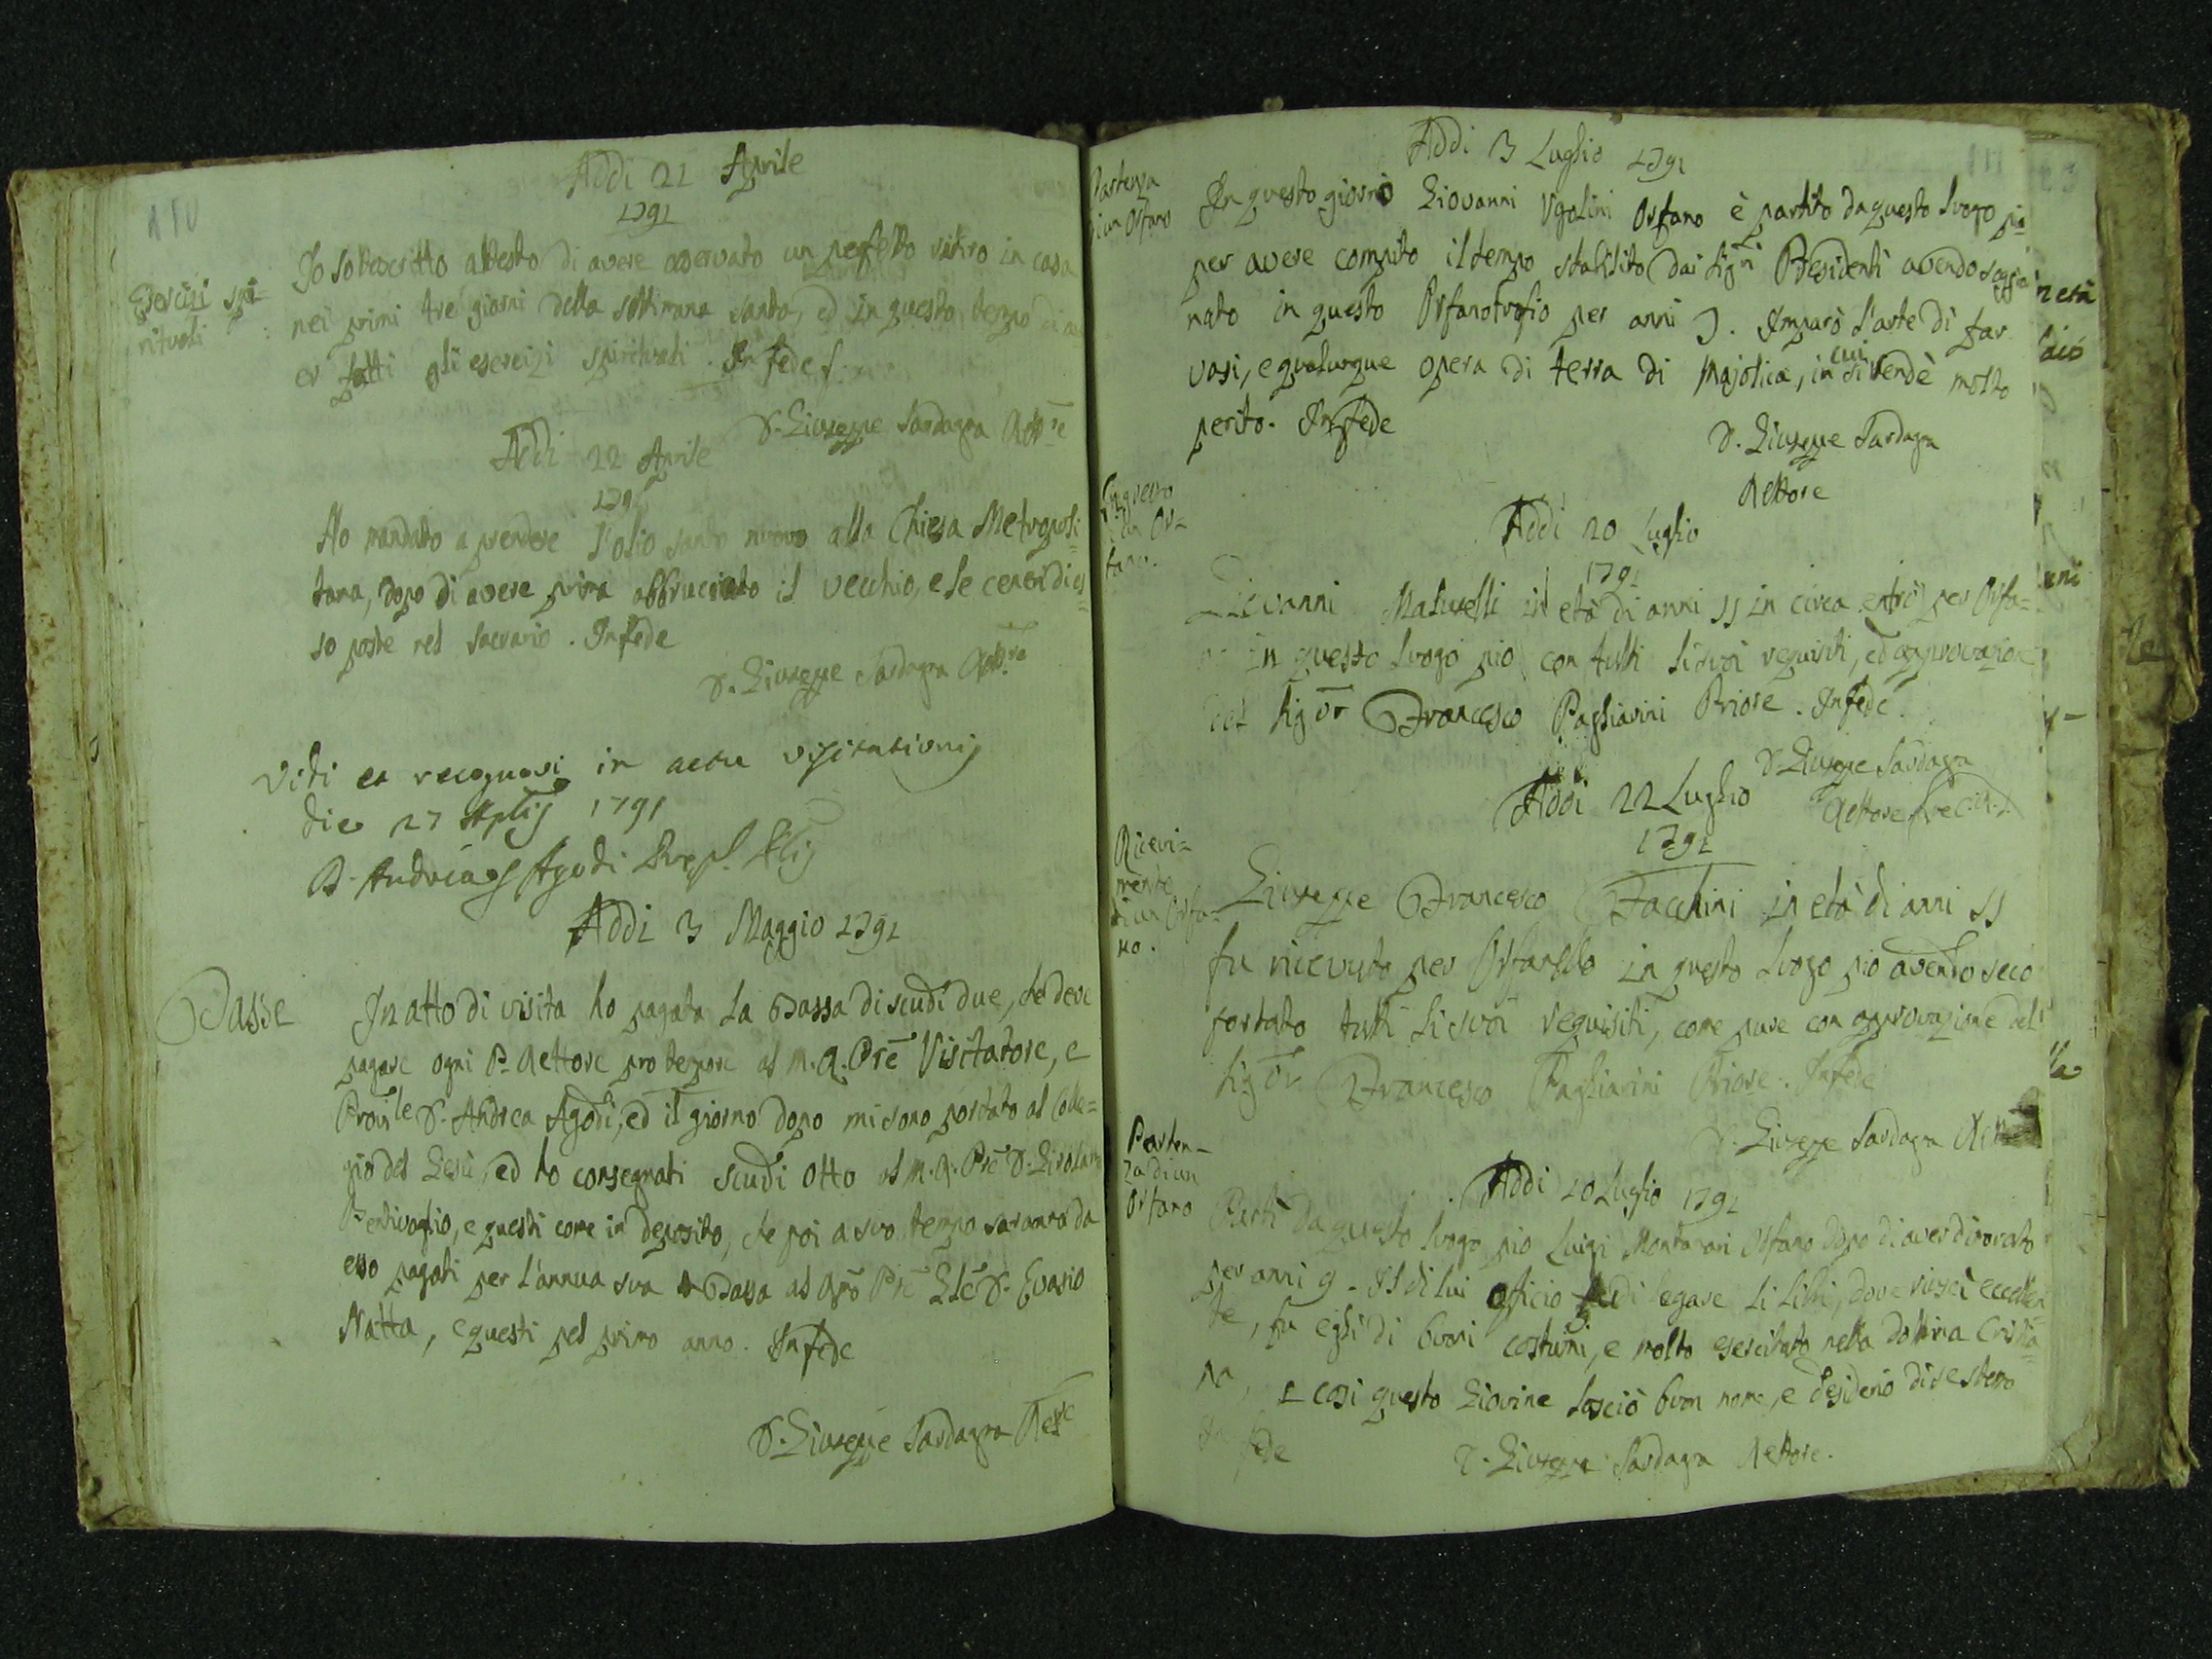 110
Addi 21 Aprile
1791
Esercizi spi=
rituali
Io sottoscritto attesto di avere osservato un perfetto ritiro in casa
nei primi tre giorni della settimana santa, ed in questo tempo di av
er fatti gli esercizi spirituali. In fede
D. Giuseppe Sardagna Rett.re
Addi 22 Aprile
1791
Ho mandato a prendere l'olio santo nuovo alla Chiesa Metropoli=
tana, dopo di avere prima abbruciato il vecchio, e le ceneri di es=
so poste nel Sacrario. In fede
D. Giuseppe Sardagna Rett.re
Vidi et recognovi in actu visitationis
die 27 Aplis 1791
D. Andreas Agodi Prep. Plis
Addi 3 Maggio 1791
Tasse
In atto di visita ho pagata la Tassa di scudi due, che deve
pagare ogni P. Rettore pro tempore al M. R. Pre Visitatore, e
Provle D. Andrea Agodi, ed il giorno dopo mi sono portato al Colle=
gio del Gesù, ed ho consegnati scudi otto al M. R. Pre D. Girolamo
Bentivoglio, e questi come in deposito, che poi a suo tempo saranno da
esso pagati per l'annua sua Tassa al Rmo Pre Gle D. Evasio
Natta, e questi pel primo anno. In fede
D. Giuseppe Sardagna Rett.re
111
Addi 3 Luglio 1791
Partenza
di un Orfano
In questo giorno Giovanni Ugolini Orfano è partito da questo luogo pio
per avere compito il tempo stabilito dai Sigri Presidenti avendo soggior
nato in questo Orfanotrofio per anni 7. Imparò l'arte di far
vasi, e qualunque opera di terra di Majolica, in cui si rendè molto
perito. In fede
D. Giuseppe Sardagna
Rettore
Addi 20 Luglio
1791
Ingresso
di un Or=
fano.
Giovanni Maturelli in età di anni 11 in circa entrò per Orfa=
no in questo luogo pio con tutti li suoi requisiti, ed approvazione
del Sigor Francesco Pagliarini Priore. In fede.
D. Giuseppe Sardagna
Rettore
Addi 22 Luglio
1791
Ricevi=
mento
di un Orfa=
no.
Giuseppe Francesco Facchini in età di anni 11
fu ricevuto per Orfanello in questo luogo pio avendo seco
portato tutti li suoi requisiti, come pure con approvazione del
Sigor Francesco Pagliarini Priore. In fede
D. Giuseppe Sardagna
Addi 20 Luglio 1791
Parten=
za di un
Orfano
Partì da questo luogo pio Luigi Montanari Orfano dopo di aver dimorato
per anni 9. Il di lui oficio di legare li libri, dove riuscì eccellen
te, fu egli di buoni costumi, e molto esercitato nella dottrina Cristia=
na, e così questo Giovine lasciò buon nome, e desiderio di se stesso
In fede
D. Giuseppe Sardagna Rettore.